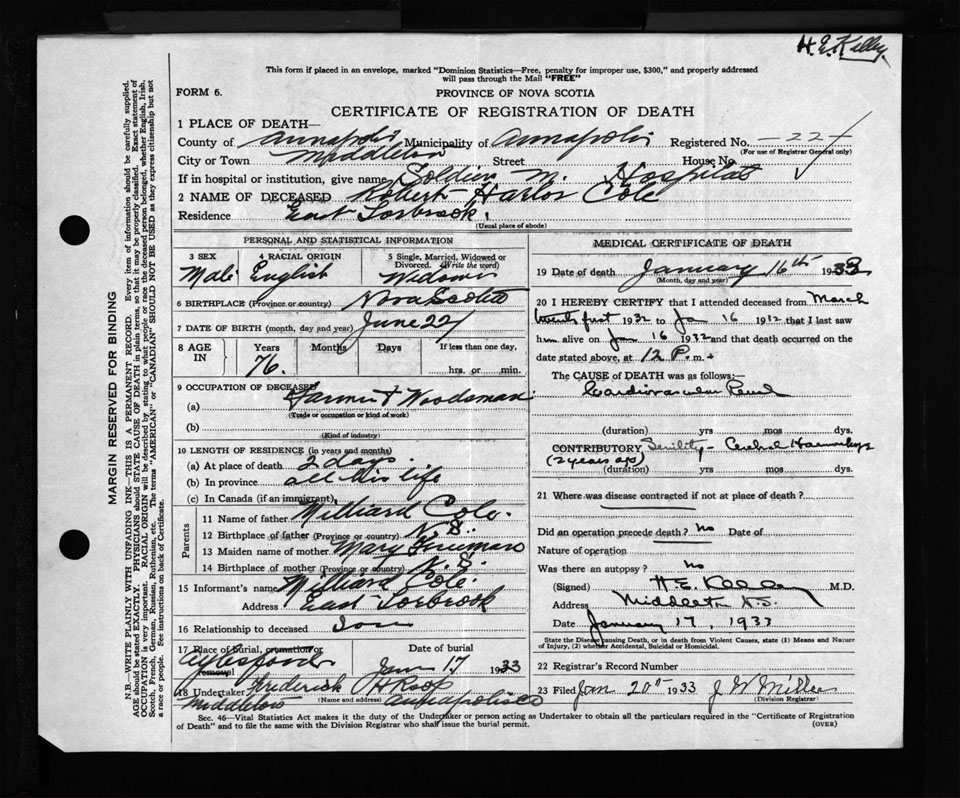 H.E. Kelley
This form if placed in an envelope, marked "Dominion Statistics—Free, penalty for improper use, $300," and properly addressed
will pass through the Mail "FREE"
FORM 6.
PROVINCE OF NOVA SCOTIA
CERTIFICATE OF REGISTRATION OF DEATH
1 PLACE OF DEATH—
County of Annapolis Municipality of Annapolis Registered No. 22
(For use of Registrar General only)
City or Town Middleton Street House No.
If in hospital or institution, give name Soldiers M. Hospital
2 NAME OF DECEASED Robert Harlor Cole
Residence East Torbrook
(Usual place of abode)
PERSONAL AND STATISTICAL INFORMATION
3 SEX Male
4 RACIAL ORIGIN English
5 Single, Married, Widowed or Divorced. (Write the word) Widower
6 BIRTHPLACE (Province or country) Nova Scotia
7 DATE OF BIRTH (month, day and year) June 22
8 AGE IN Years Months Days If less than one day,
76. hrs. or min.
9 OCCUPATION OF DECEASED
(a) Farmer & Woodsman
(Trade or occupation or kind of work)
(b)
(Kind of industry)
10 LENGTH OF RESIDENCE (in years and months)
(a) At place of death 2 days
(b) In province all his life
(c) In Canada (if an immigrant)
Parents
11 Name of father Milliard Cole.
12 Birthplace of father (Province or country) N.S.
13 Maiden name of mother Mary Freeman
14 Birthplace of mother (Province or country) N.S.
15 Informant's name Milliard Cole.
Address East Torbrook
16 Relationship to deceased Son
17 Place of burial, cremation or removal Aylesford
Date of burial Jan 17 1933
18 Undertaker Frederick H Roop
(Name and address)
Middleton Annapolis Co
MEDICAL CERTIFICATE OF DEATH
19 Date of death January 16th 1933
(Month, day and year)
20 I HEREBY CERTIFY that I attended deceased from March
twenty first 1932 to Jan 16 1932 that I last saw
him alive on Jan 16 1932 and that death occurred on the
date stated above, at 12 P. m.
The CAUSE of DEATH was as follows:—
Cardiovascular Renal
(duration) yrs mos dys.
CONTRIBUTORY Senility - Cerebral Haemorrhage
(2 years ago)
(duration) yrs mos dys.
21 Where was disease contracted if not at place of death?
Did an operation precede death? No Date of
Nature of operation
Was there an autopsy? No
(Signed) H.E. Kelley M.D.
Address Middleton N.S.
Date January 17, 1933
State the Disease causing Death, or in death from Violent Causes, state (1) Means and Nature
of Injury, (2) whether Accidental, Suicidal or Homicidal.
22 Registrar's Record Number
23 Filed Jan 20th 1933 J W Miller
(Division Registrar)
Sec. 46—Vital Statistics Act makes it the duty of the Undertaker or person acting as Undertaker to obtain all the particulars required in the "Certificate of Registration
of Death" and to file the same with the Division Registrar who shall issue the burial permit.
(OVER)
MARGIN RESERVED FOR BINDING
N.B.—WRITE PLAINLY WITH UNFADING INK—THIS IS A PERMANENT RECORD. Every item of information should be carefully supplied.
AGE should be stated EXACTLY. PHYSICIANS should STATE CAUSE OF DEATH in plain terms, so that it may be properly classified. Exact statement of
OCCUPATION is very important. RACIAL ORIGIN will be described by stating to what people or race the deceased person belonged, whether English, Irish,
Scotch, French, German, Russian, Ruthenian, etc. The terms "AMERICAN" or "CANADIAN" SHOULD NOT BE USED as they express citizenship but not
a race or people. See instructions on back of Certificate.